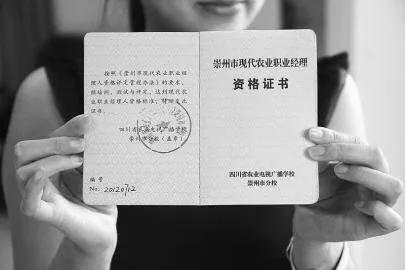 按照《崇州市现代农业职业经
理人资格评定管理办法》的要求,
经培训、考试与评定,达到现代农
业职业经理人资格标准,特颁发此
证书。
四川省农业电视广播学校
崇州市分校(盖章)
编号
No: 20120712
崇州市现代农业职业经理
资格证书
四川省农业电视广播学校
崇州市分校